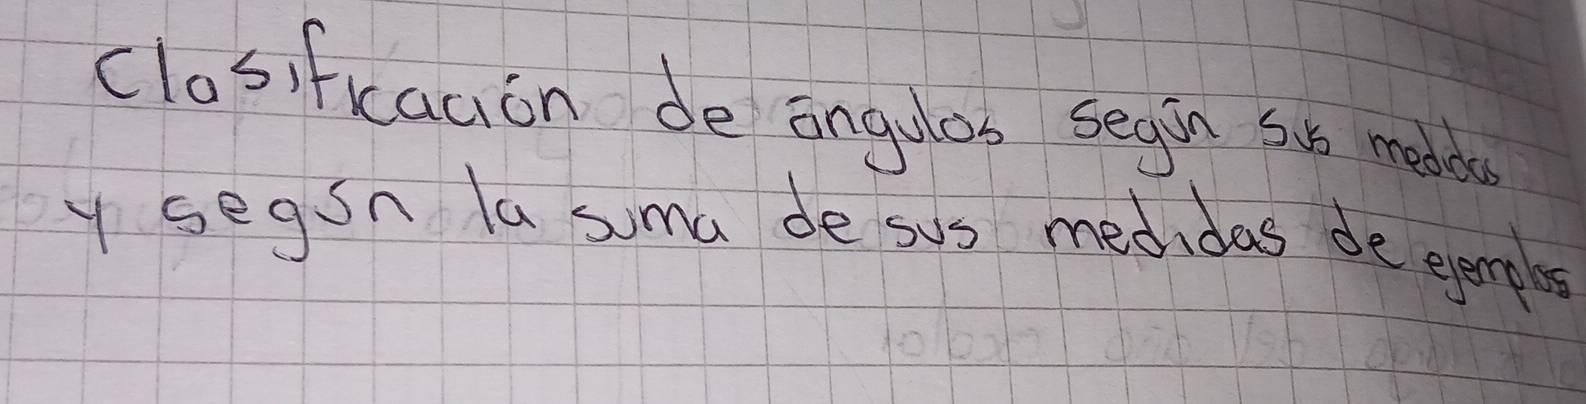 Clasificación de ángulos según sus medidas
y según la suma de sus medidas de ejemplos